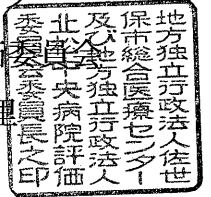 地方独立行政法人佐世
保市総合医療センター
及び地方独立行政法人
北松中央病院評価
委員会委員長之印
委員会
理